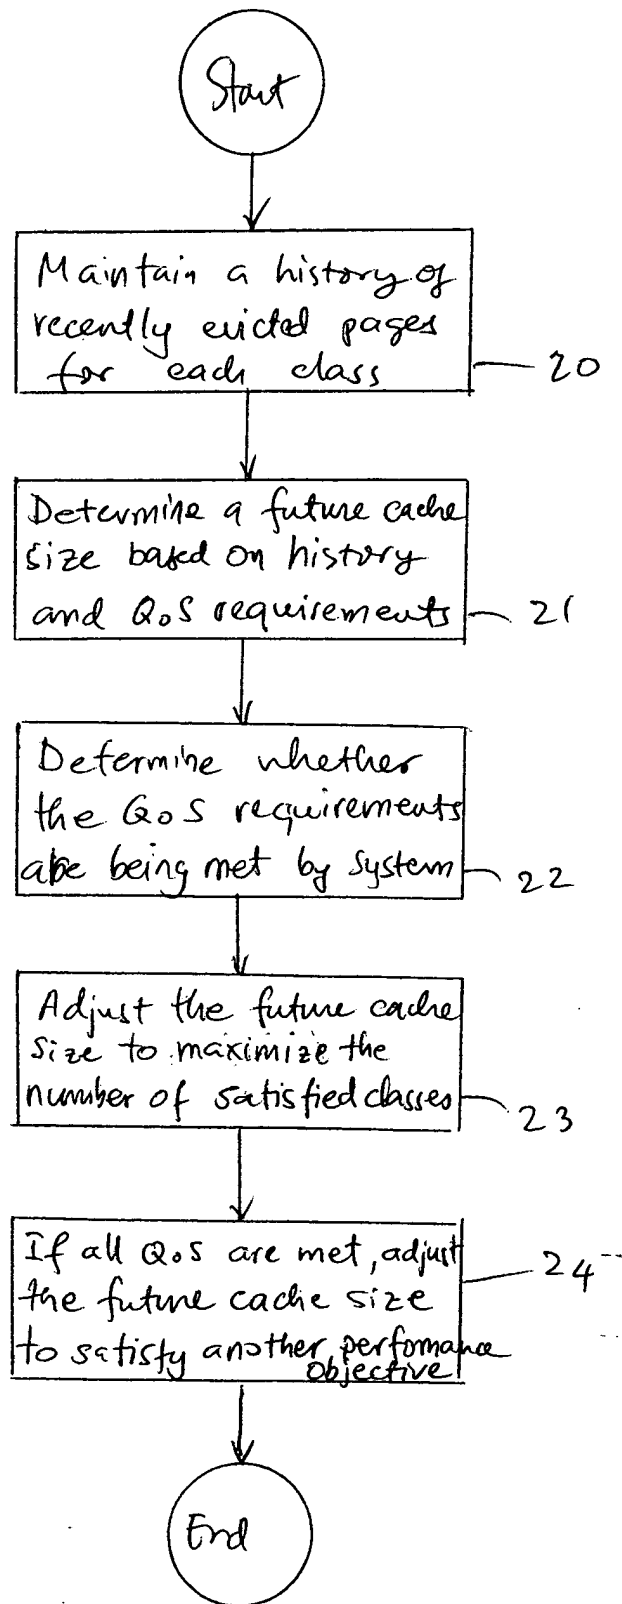 Start
Maintain a history of
recently evicted pages
for each class
20
Determine a future cache
size based on history
and QoS requirements
21
Determine whether
the QoS requirements
are being met by system
22
Adjust the future cache
size to maximize the
number of satisfied classes
23
If all QoS are met, adjust
the future cache size
to satisfy another performance
objective
24
End